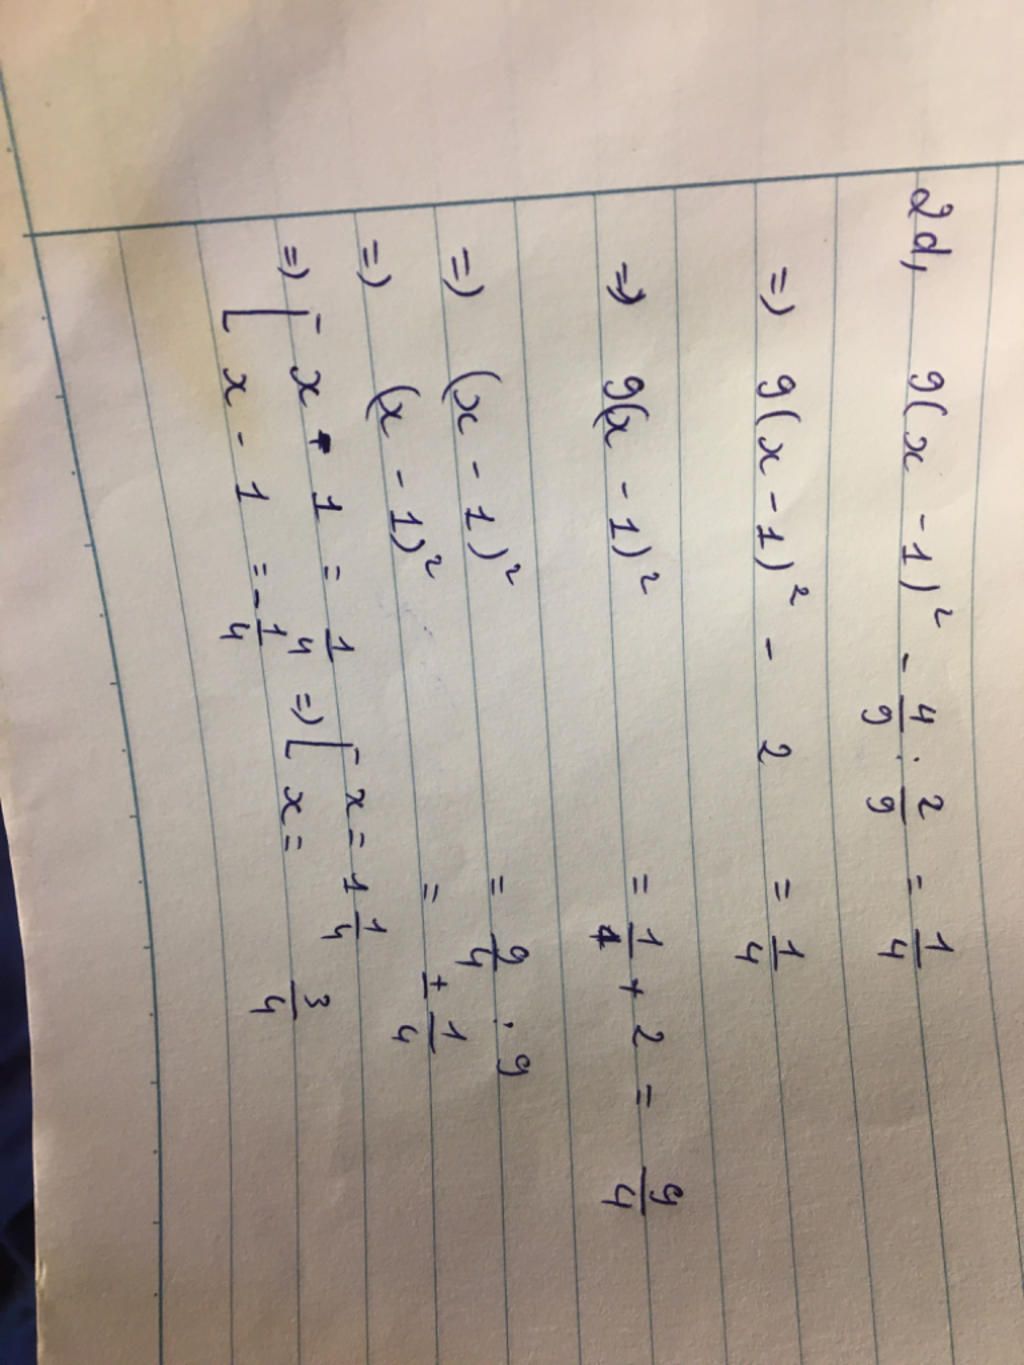 2d, 9(x - 1)² - 4/9 : 2/9 = 1/4
=> 9(x - 1)² - 2 = 1/4
=> 9(x - 1)² = 1/4 + 2 = 9/4
=> (x - 1)² = 9/4 : 9
=> (x - 1)² = ± 1/4
=> [ x - 1 = 1/4 => [ x = 1 1/4
x - 1 = - 1/4 x = 3/4